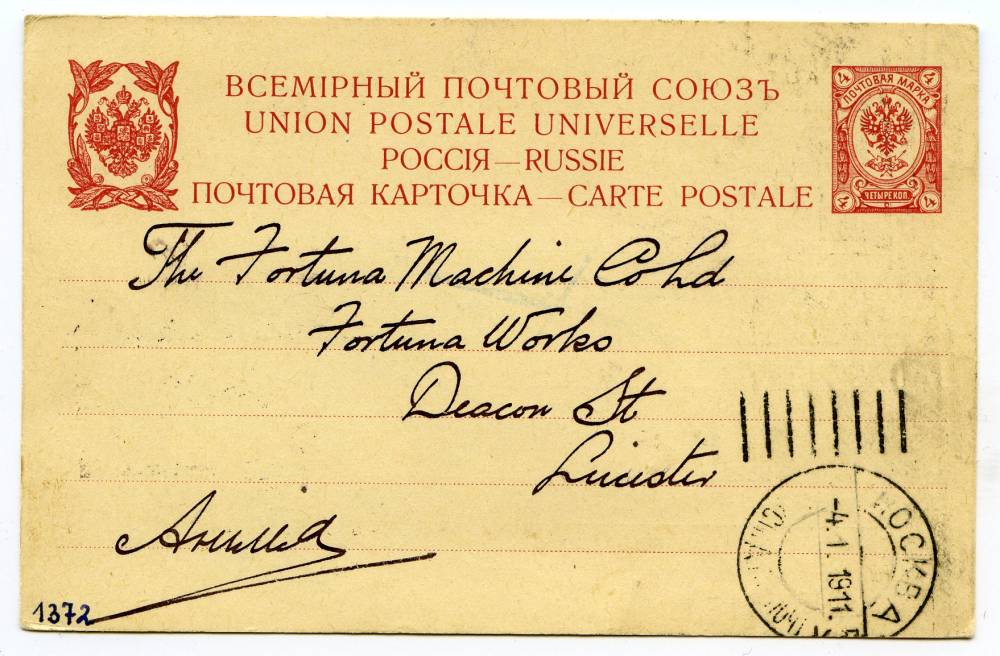 ВСЕМІРНЫЙ ПОЧТОВЫЙ СОЮЗЪ
UNION POSTALE UNIVERSELLE
РОССІЯ — RUSSIE
ПОЧТОВАЯ КАРТОЧКА — CARTE POSTALE
4 4
ПОЧТОВАЯ МАРКА
ЧЕТЫРЕ КОП.
4 4
The Fortuna Machine Co Ld
Fortuna Works
Deacon St
Leicester
Англія
МОСКВА
-4.1.1911.
1372